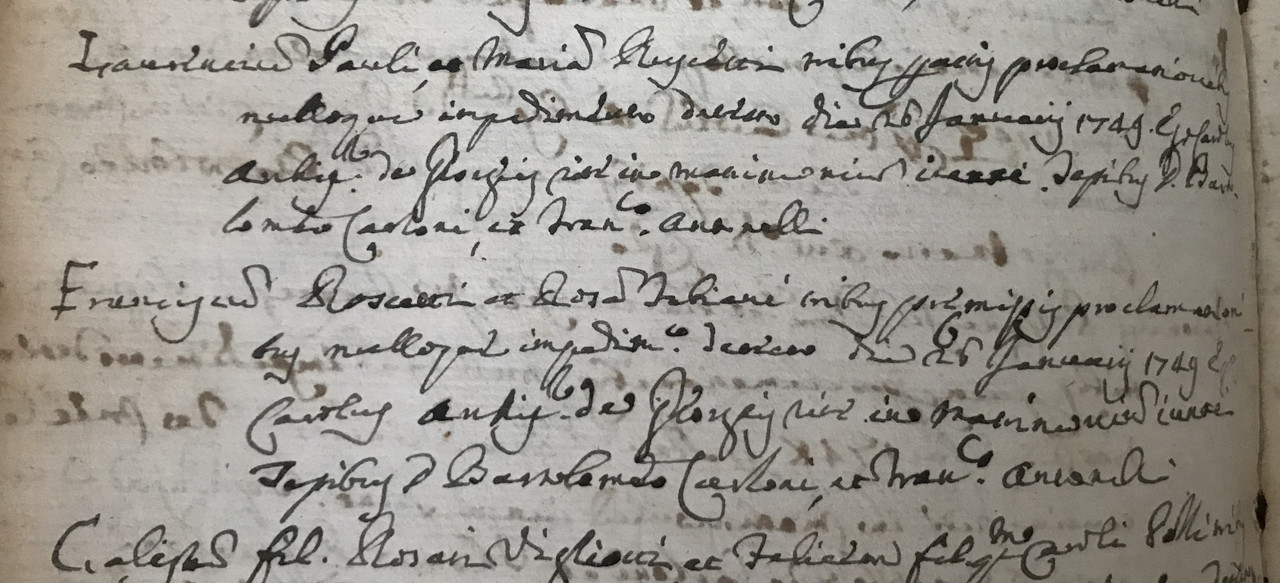 Laurentium Pauli, et Mariam Angeletti tribus factis proclamationib
nulloque impedimento detecto die 26 Januarij 1749. Ego Carolus
Archip. de Giorgis rite in matrimonium iunxi. Testibus D. Barto
lomeo Carloni, et Franco. Antonelli
Franciscum et Rosam Fabiani tribus premissis proclamationi
bus nulloque impedimto. detecto die 26 Januarij 1749 Ego
Carolus Archip. de Giorgis rite in Matrimonium iunxi
Testibus D Bartolomeo Carloni, et Franco. Antonelli
fil. et filiam qm Caroli